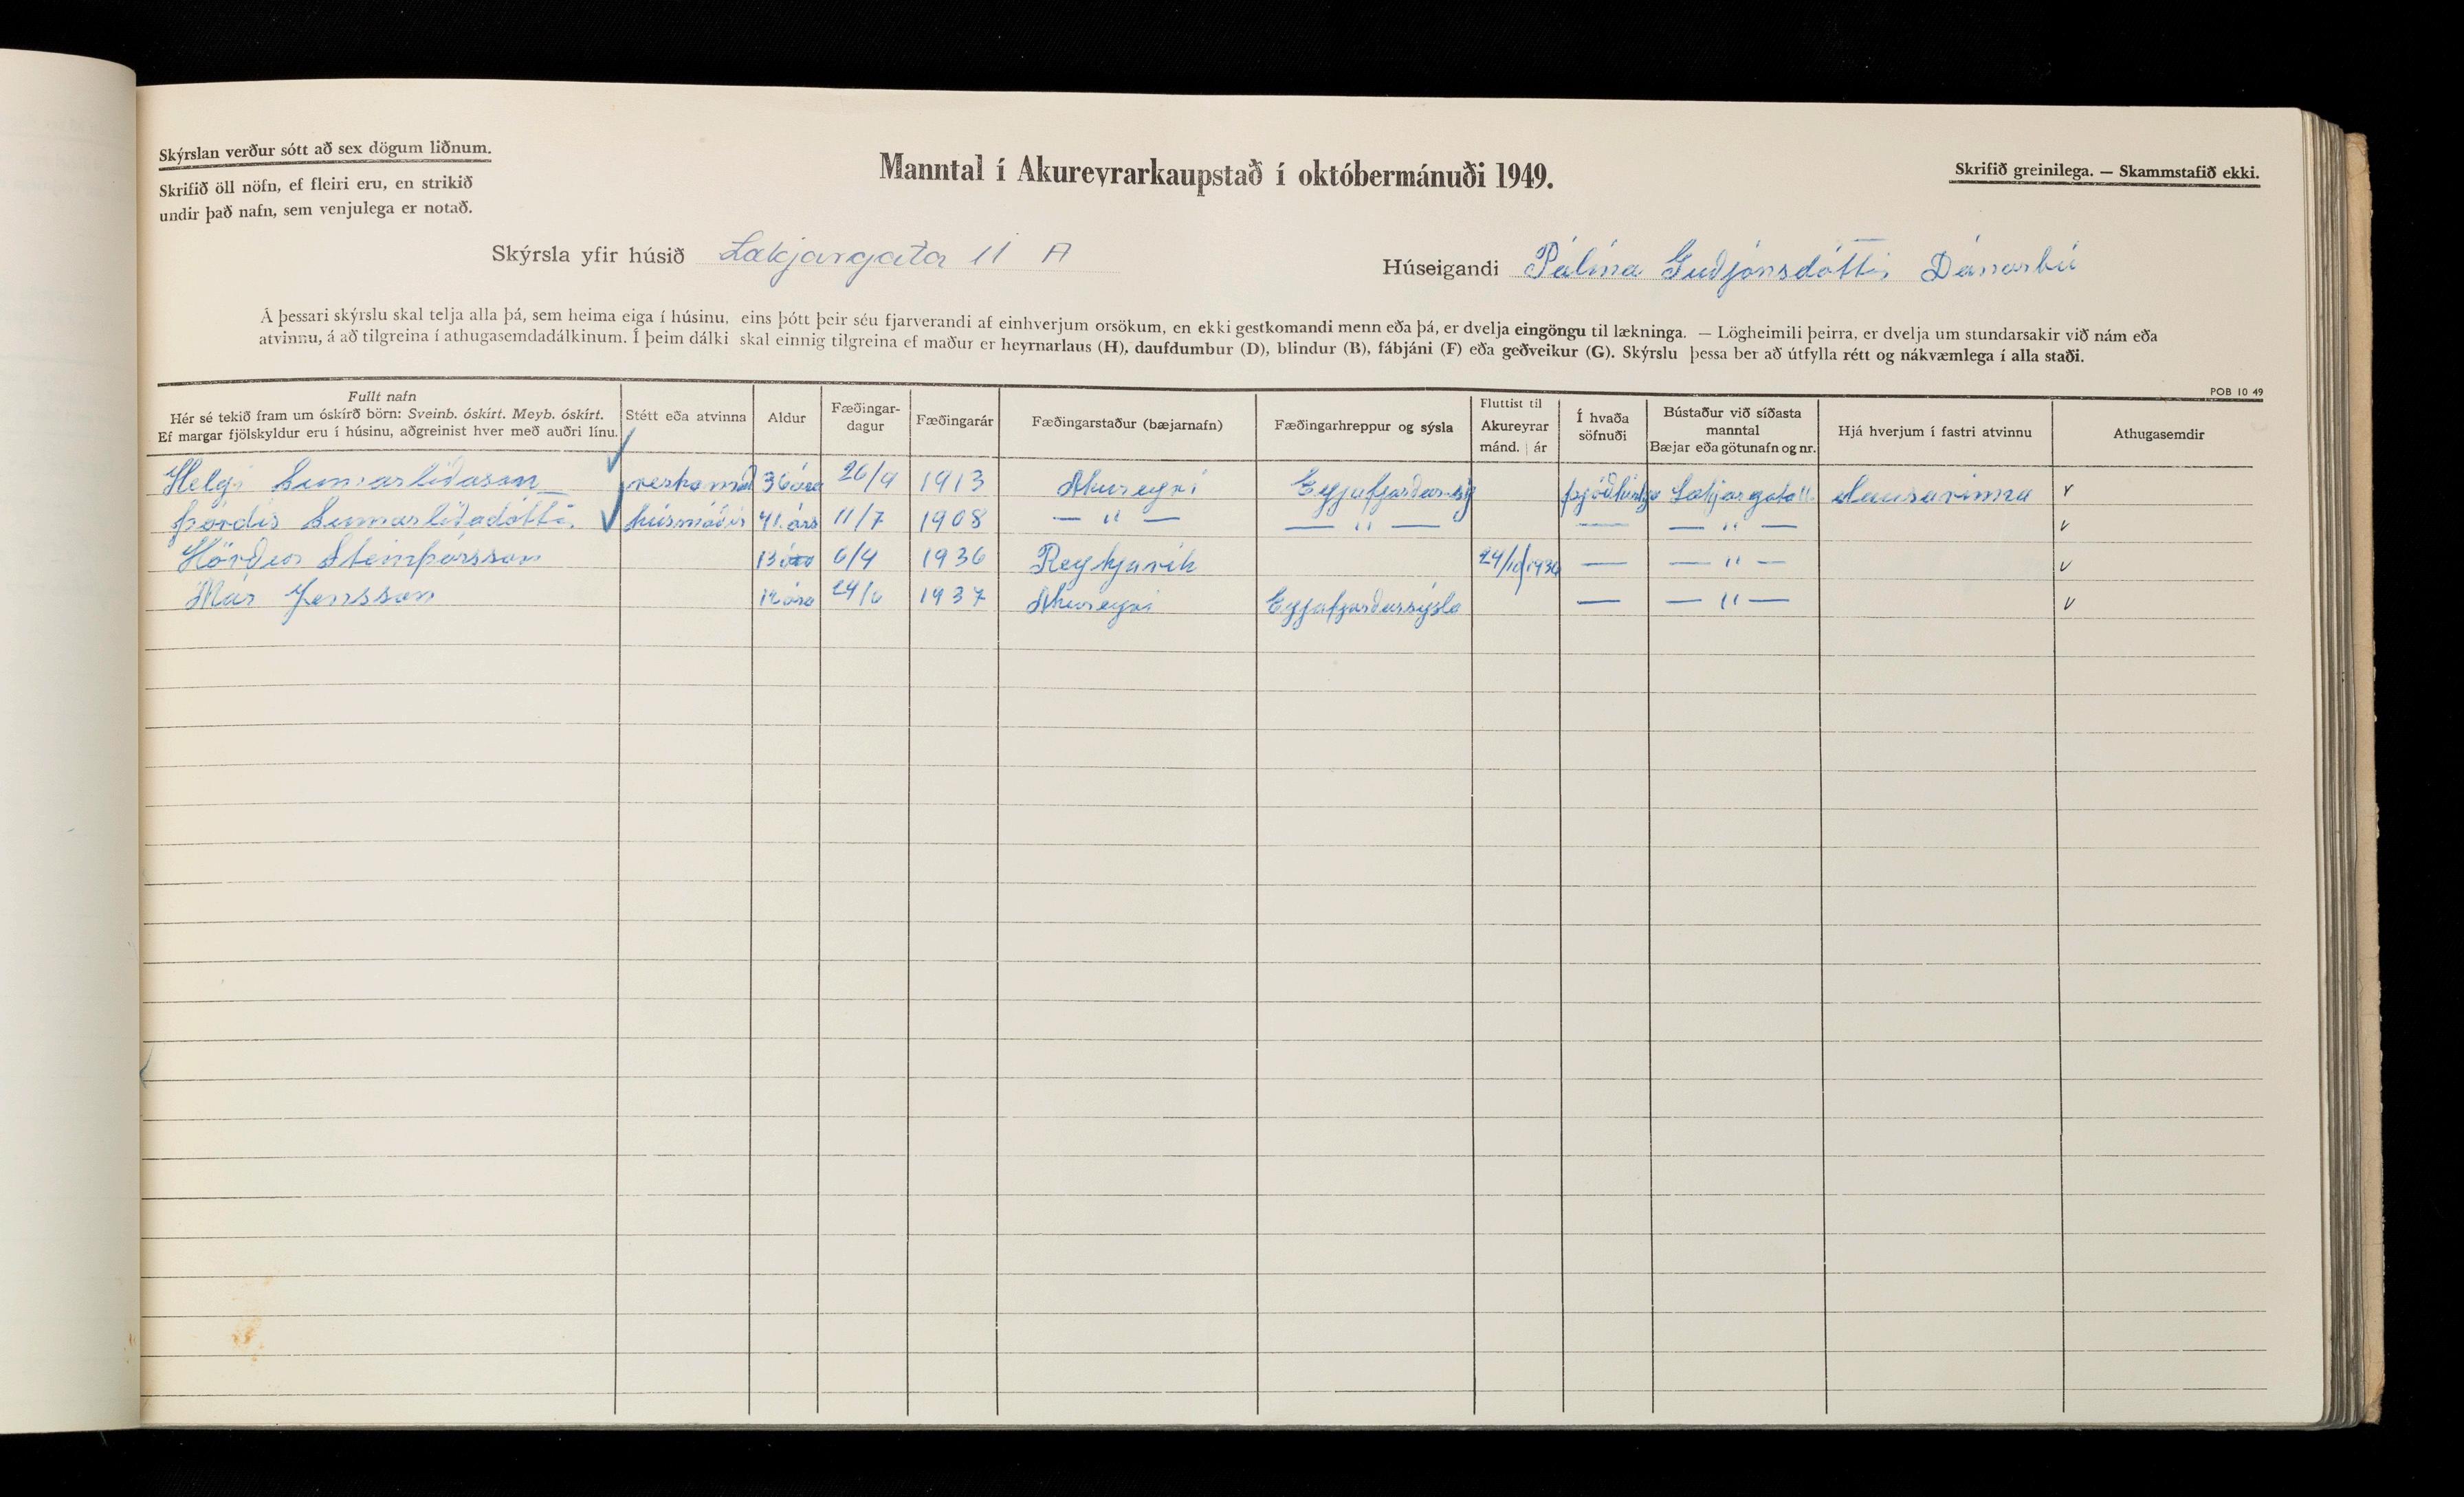 Skýrslan verður sótt að sex dögum liðnum.
Skrifið öll nöfn, ef fleiri eru, en strikið
undir það nafn, sem venjulega er notað.
Manntal í Akureyrarkaupstað í októbermánuði 1949.
Skrifið greinilega. — Skammstafið ekki.
Skýrsla yfir húsið Lækjargata 11 A
Húseigandi Pálína Guðjónsdóttir Dánarbú
Á þessari skýrslu skal telja alla þá, sem heima eiga í húsinu, eins þótt þeir séu fjarverandi af einhverjum orsökum, en ekki gestkomandi menn eða þá, er dvelja eingöngu til lækninga. — Lögheimili þeirra, er dvelja um stundarsakir við nám eða
atvinnu, á að tilgreina í athugasemdadálkinum. Í þeim dálki skal einnig tilgreina ef maður er heyrnarlaus (H), daufdumbur (D), blindur (B), fábjáni (F) eða geðveikur (G). Skýrslu þessa ber að útfylla rétt og nákvæmlega í alla staði.
POB 10 49
Fullt nafn
Hér sé tekið fram um óskírð börn: Sveinb. óskírt. Meyb. óskírt.
Ef margar fjölskyldur eru í húsinu, aðgreinist hver með auðri línu.
Stétt eða atvinna
Aldur
Fæðingar-
dagur
Fæðingarár
Fæðingarstaður (bæjarnafn)
Fæðingarhreppur og sýsla
Fluttist til
Akureyrar
mánd. | ár
Í hvaða
söfnuði
Bústaður við síðasta
manntal
Bæjar eða götunafn og nr.
Hjá hverjum í fastri atvinnu
Athugasemdir
Helgi Sumarliðason ✓ 36 ára 26/9 1913 Akureyri Eyjafjarðarsý Lækjargata 11 Lausavinna v
Þórdís Sumarliðadóttir ✓ húsmóðir 41. árs 11/7 1908 — " — — " — — — " — v
Hörður Steinþórsson 13 ára 6/4 1936 Reykjavík 24/10 1936 — — " — v
Már Jensson 12 ára 24/6 1937 Akureyri Eyjafjarðarsýsla — — " — v